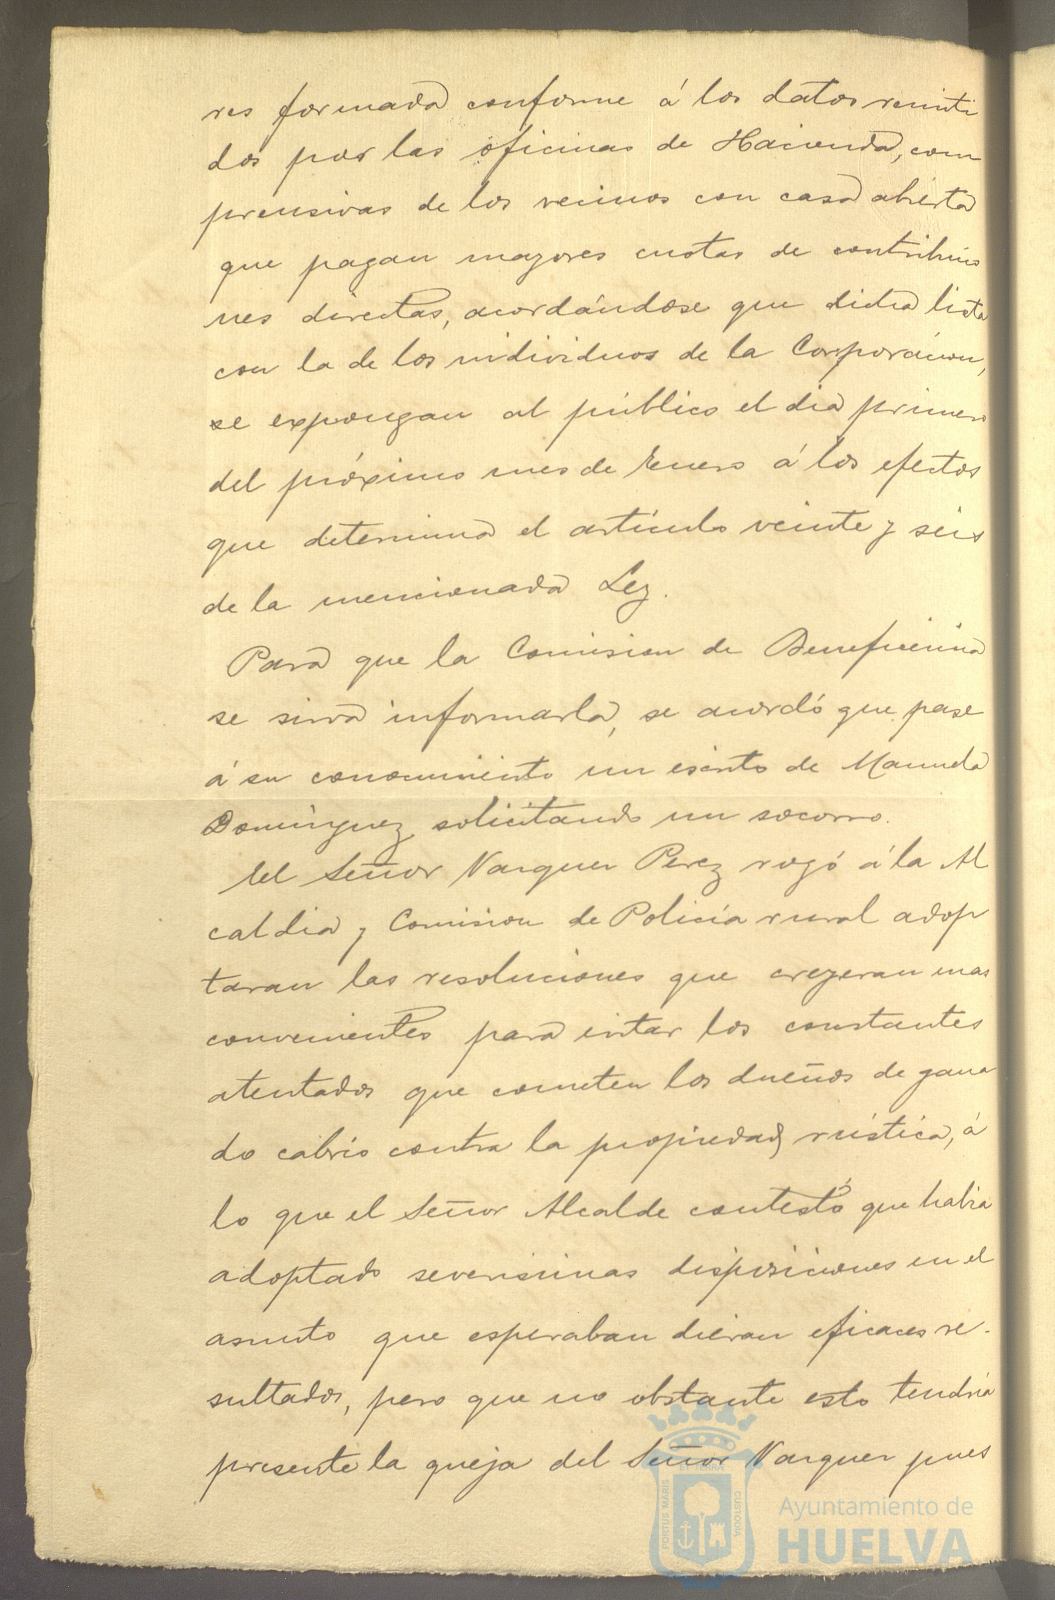 res formada conforme á los datos remiti
dos por las oficinas de Hacienda, com
prensivas de los vecinos con casa abierta
que pagan mayores cuotas de contribucio
nes directas, acordándose que dicha lista
con la de los individuos de la Corporacion,
se expongan al público el dia primero
del próximo mes de Enero á los efectos
que determina el artículo veinte y seis
de la mencionada Ley.
Para que la Comision de Beneficencia
se sirva informarla, se acordó que pase
á su conocimiento un escrito de Manuela
Dominguez solicitando un socorro.
El Señor Vazquez Perez rogó á la Al
caldia y Comision de Policía rural adop
taran las resoluciones que creyeran mas
convenientes para evitar los constantes
atentados que cometen los dueños de gana
do cabrío contra la propiedad rústica, á
lo que el Señor Alcalde contestó que habia
adoptado severisimas disposiciones en el
asunto que esperaban dieran eficaces re-
sultados, pero que no obstante esto tendria
presente la queja del Señor Vazquez pues
PORTUS MARIS
CUSTODIA
Ayuntamiento de
HUELVA